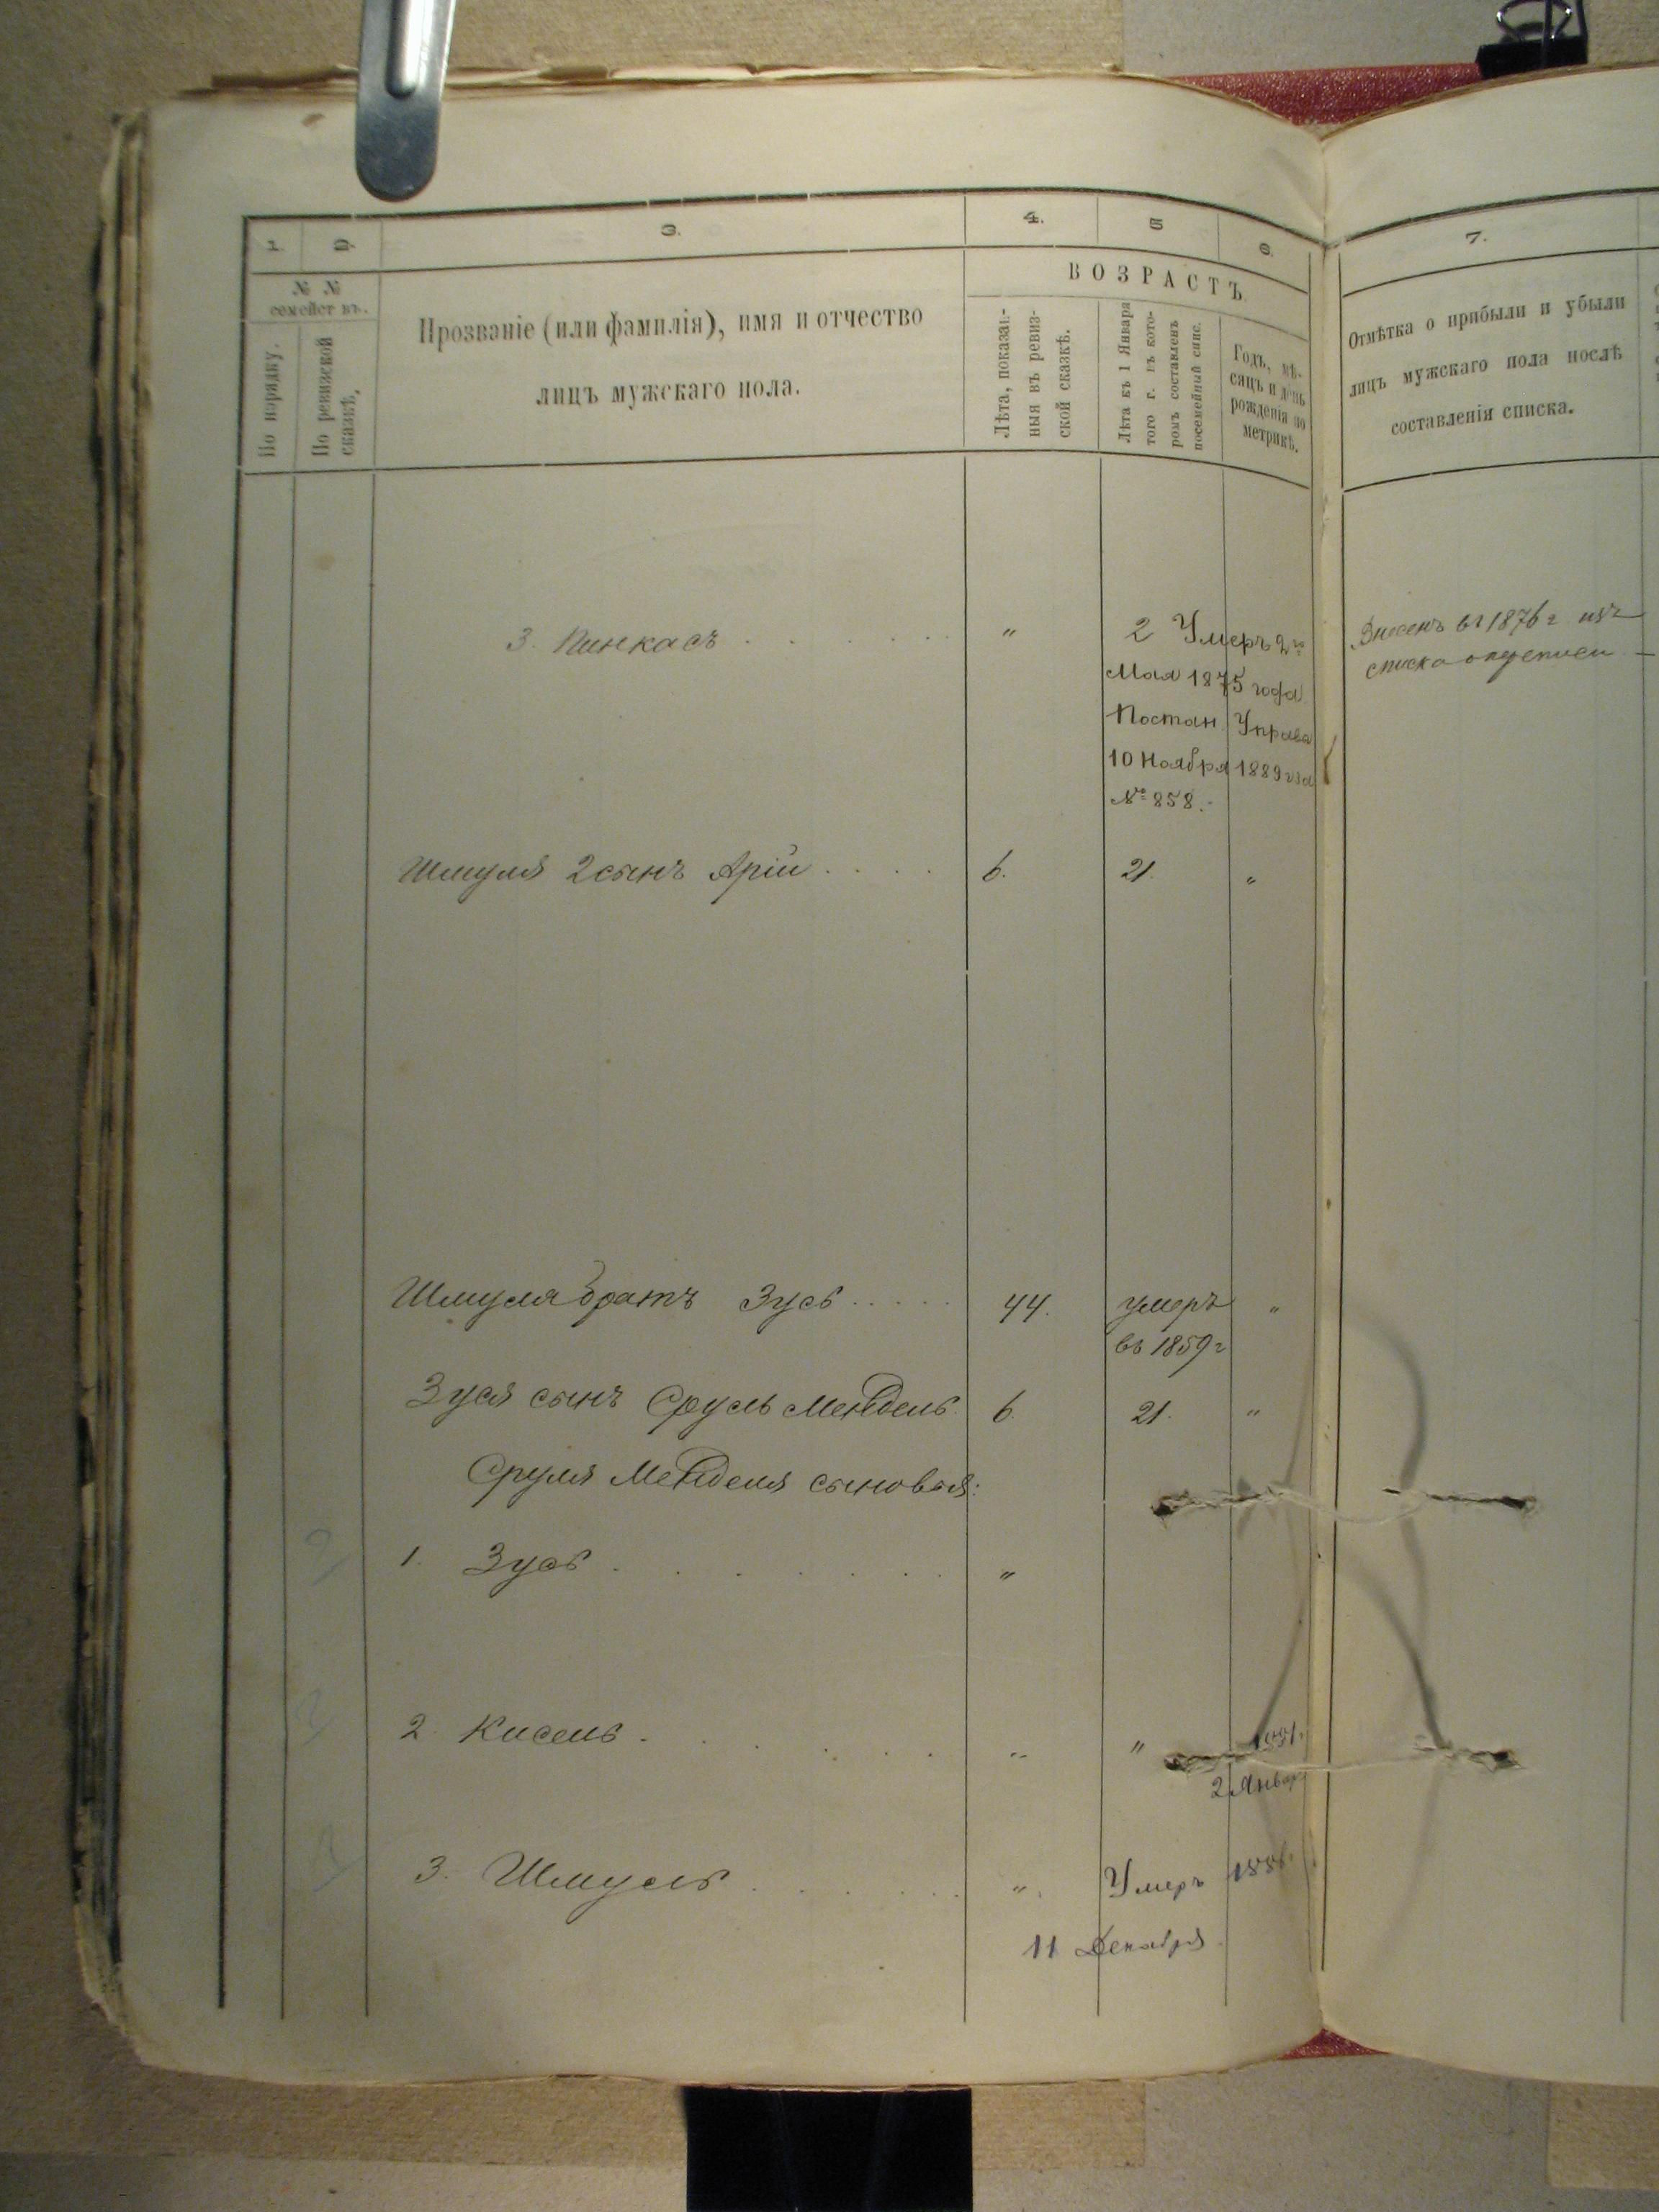 1. 2. 3. 4. 5 6. 7.
№ №
семейст въ.
По порядку.
По ревизской
сказкѣ.
Прозваніе (или фамилія), имя и отчество
лицъ мужскаго пола.
ВОЗРАСТЪ.
Лѣта, показан-
ныя въ ревиз-
ской сказкѣ.
Лѣта къ 1 Января
того г. въ кото-
ромъ составленъ
посемейный спис.
Годъ, мѣ-
сяцъ и день
рожденія по
метрикѣ.
Отмѣтка о прибыли и убыли
лицъ мужскаго пола послѣ
составленія списка.
3. Пинкасъ . . . . . . " 2 Умеръ 2го
Мая 1875 года
Постан. Управы
10 Ноября 1889 г за
№ 858.
Внесенъ въ 1876 г изъ
списка
Шмуля 2 сынъ Арій . . . . 6. 21. "
Шмуля братъ Зусь . . . . . 44. умеръ "
въ 1859 г
Зуся сынъ Сруль Мендель. 6. 21. "
Сруля Менделя сыновья:
1. Зусь . . . . . . . "
2. Кисель . . . . . . . " "
2 Январ
3. Шмуль . . . . . . ". Умеръ
11 Декабря.